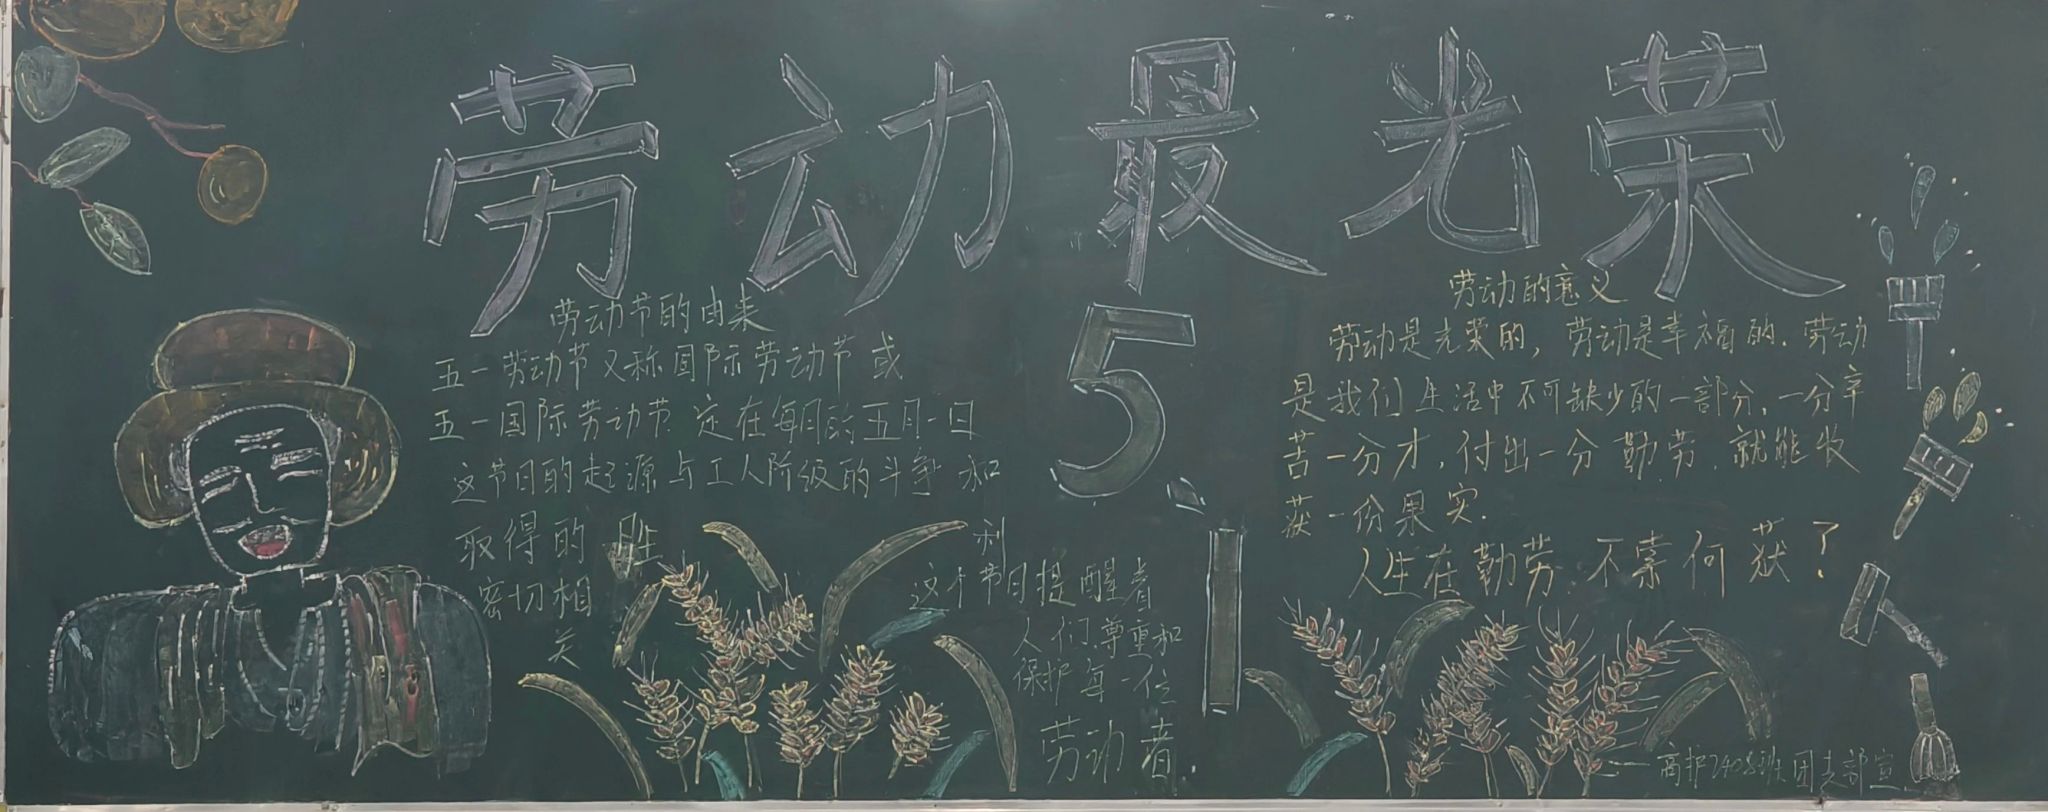 劳动最光荣
劳动节的由来
五一劳动节又称国际劳动节或
五一国际劳动节 定在每月的五月一日
这节日的起源与工人阶级的斗争和
取得的胜利
密切相
关
这个节日提醒着
人们尊重和
保护每一位
劳动者.
5.1
劳动的意义
劳动是光荣的,劳动是幸福的.劳动
是我们生活中不可缺少的一部分,一分辛
苦一分才,付出一分勤劳.就能收
获一份果实.
人生在勤劳.不索何获?
高护2408班团支部宣